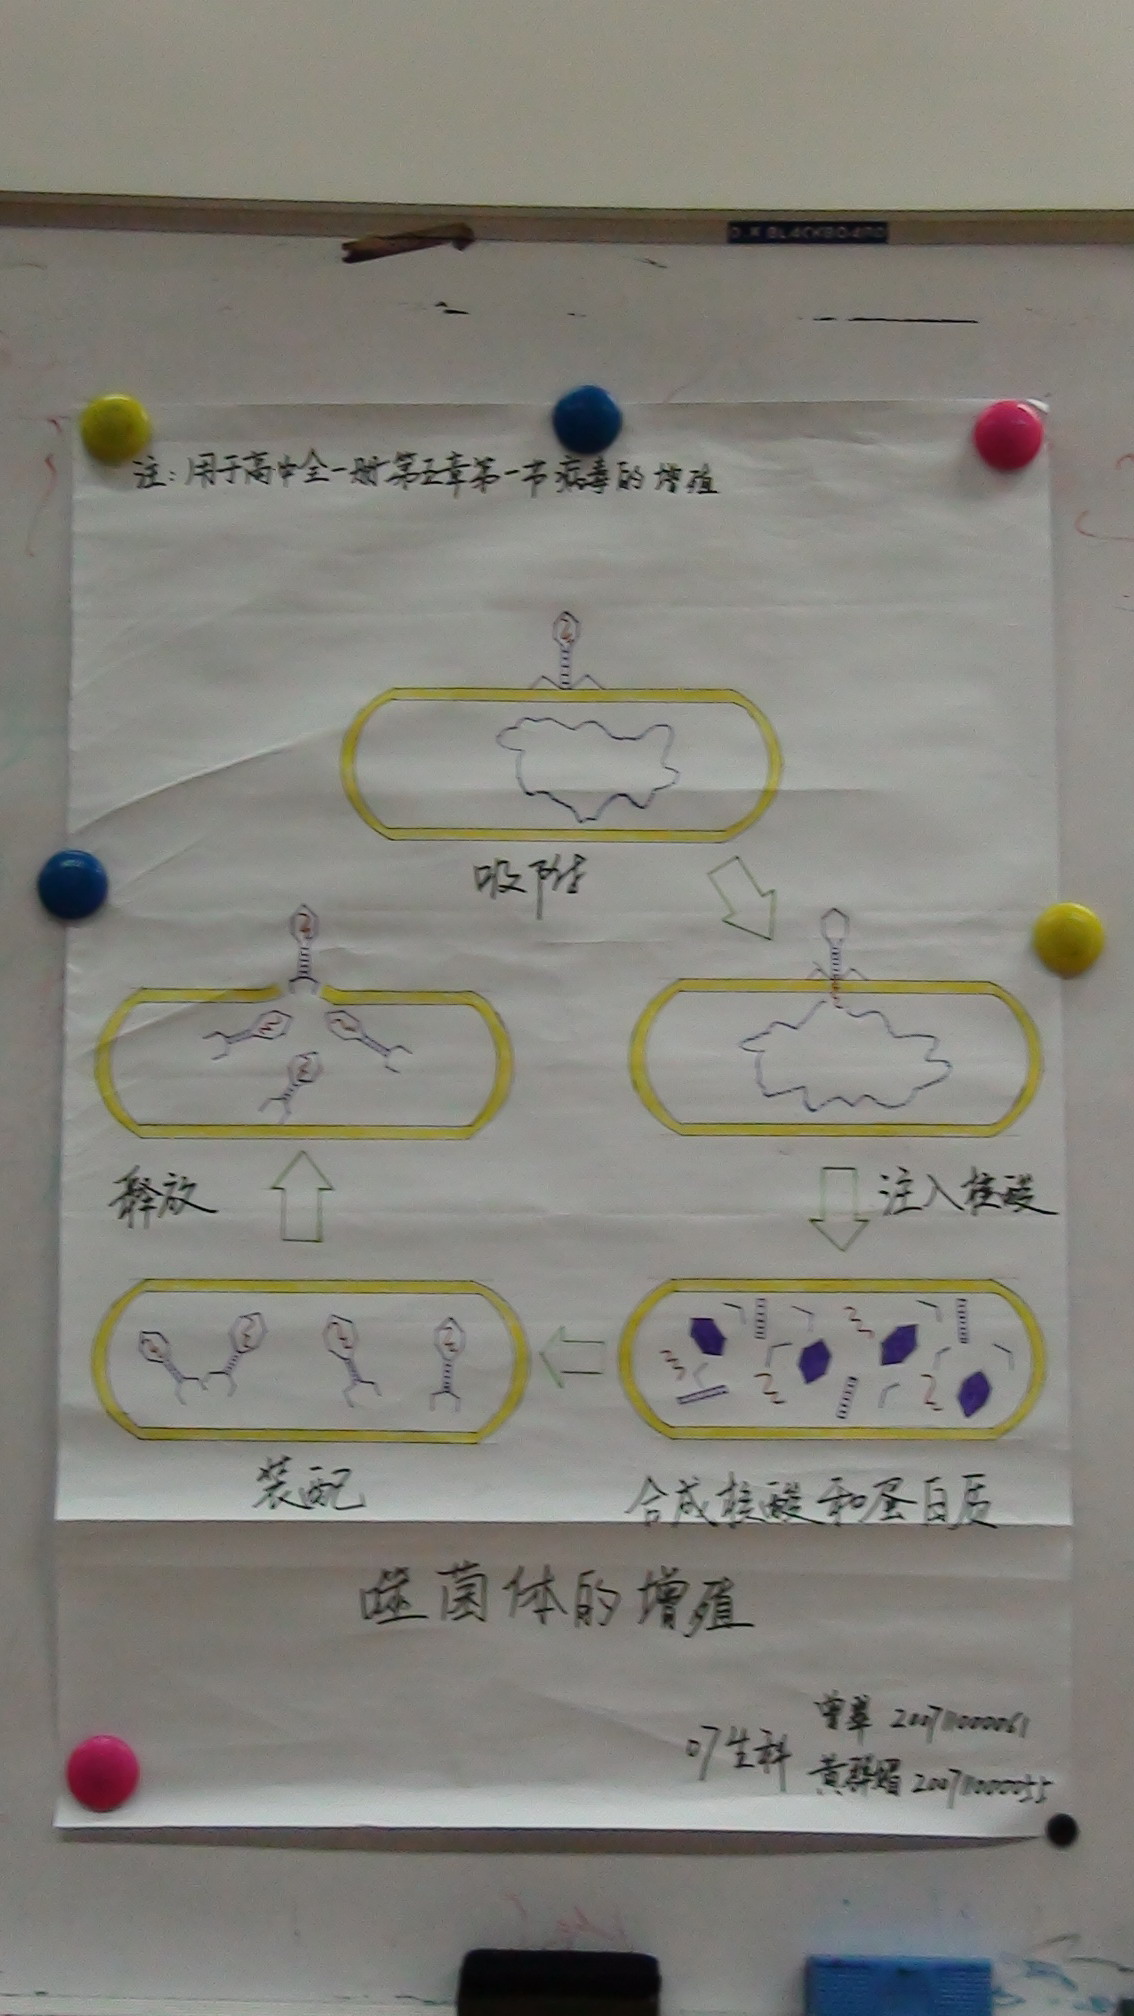 O.K BLACKBOARD
注：用于高中全一册第五章第一节病毒的增殖
吸附
注入核酸
合成核酸和蛋白质
装配
释放
噬菌体的增殖
07生科
曾翠 200711000061
黄 媚 200711000055